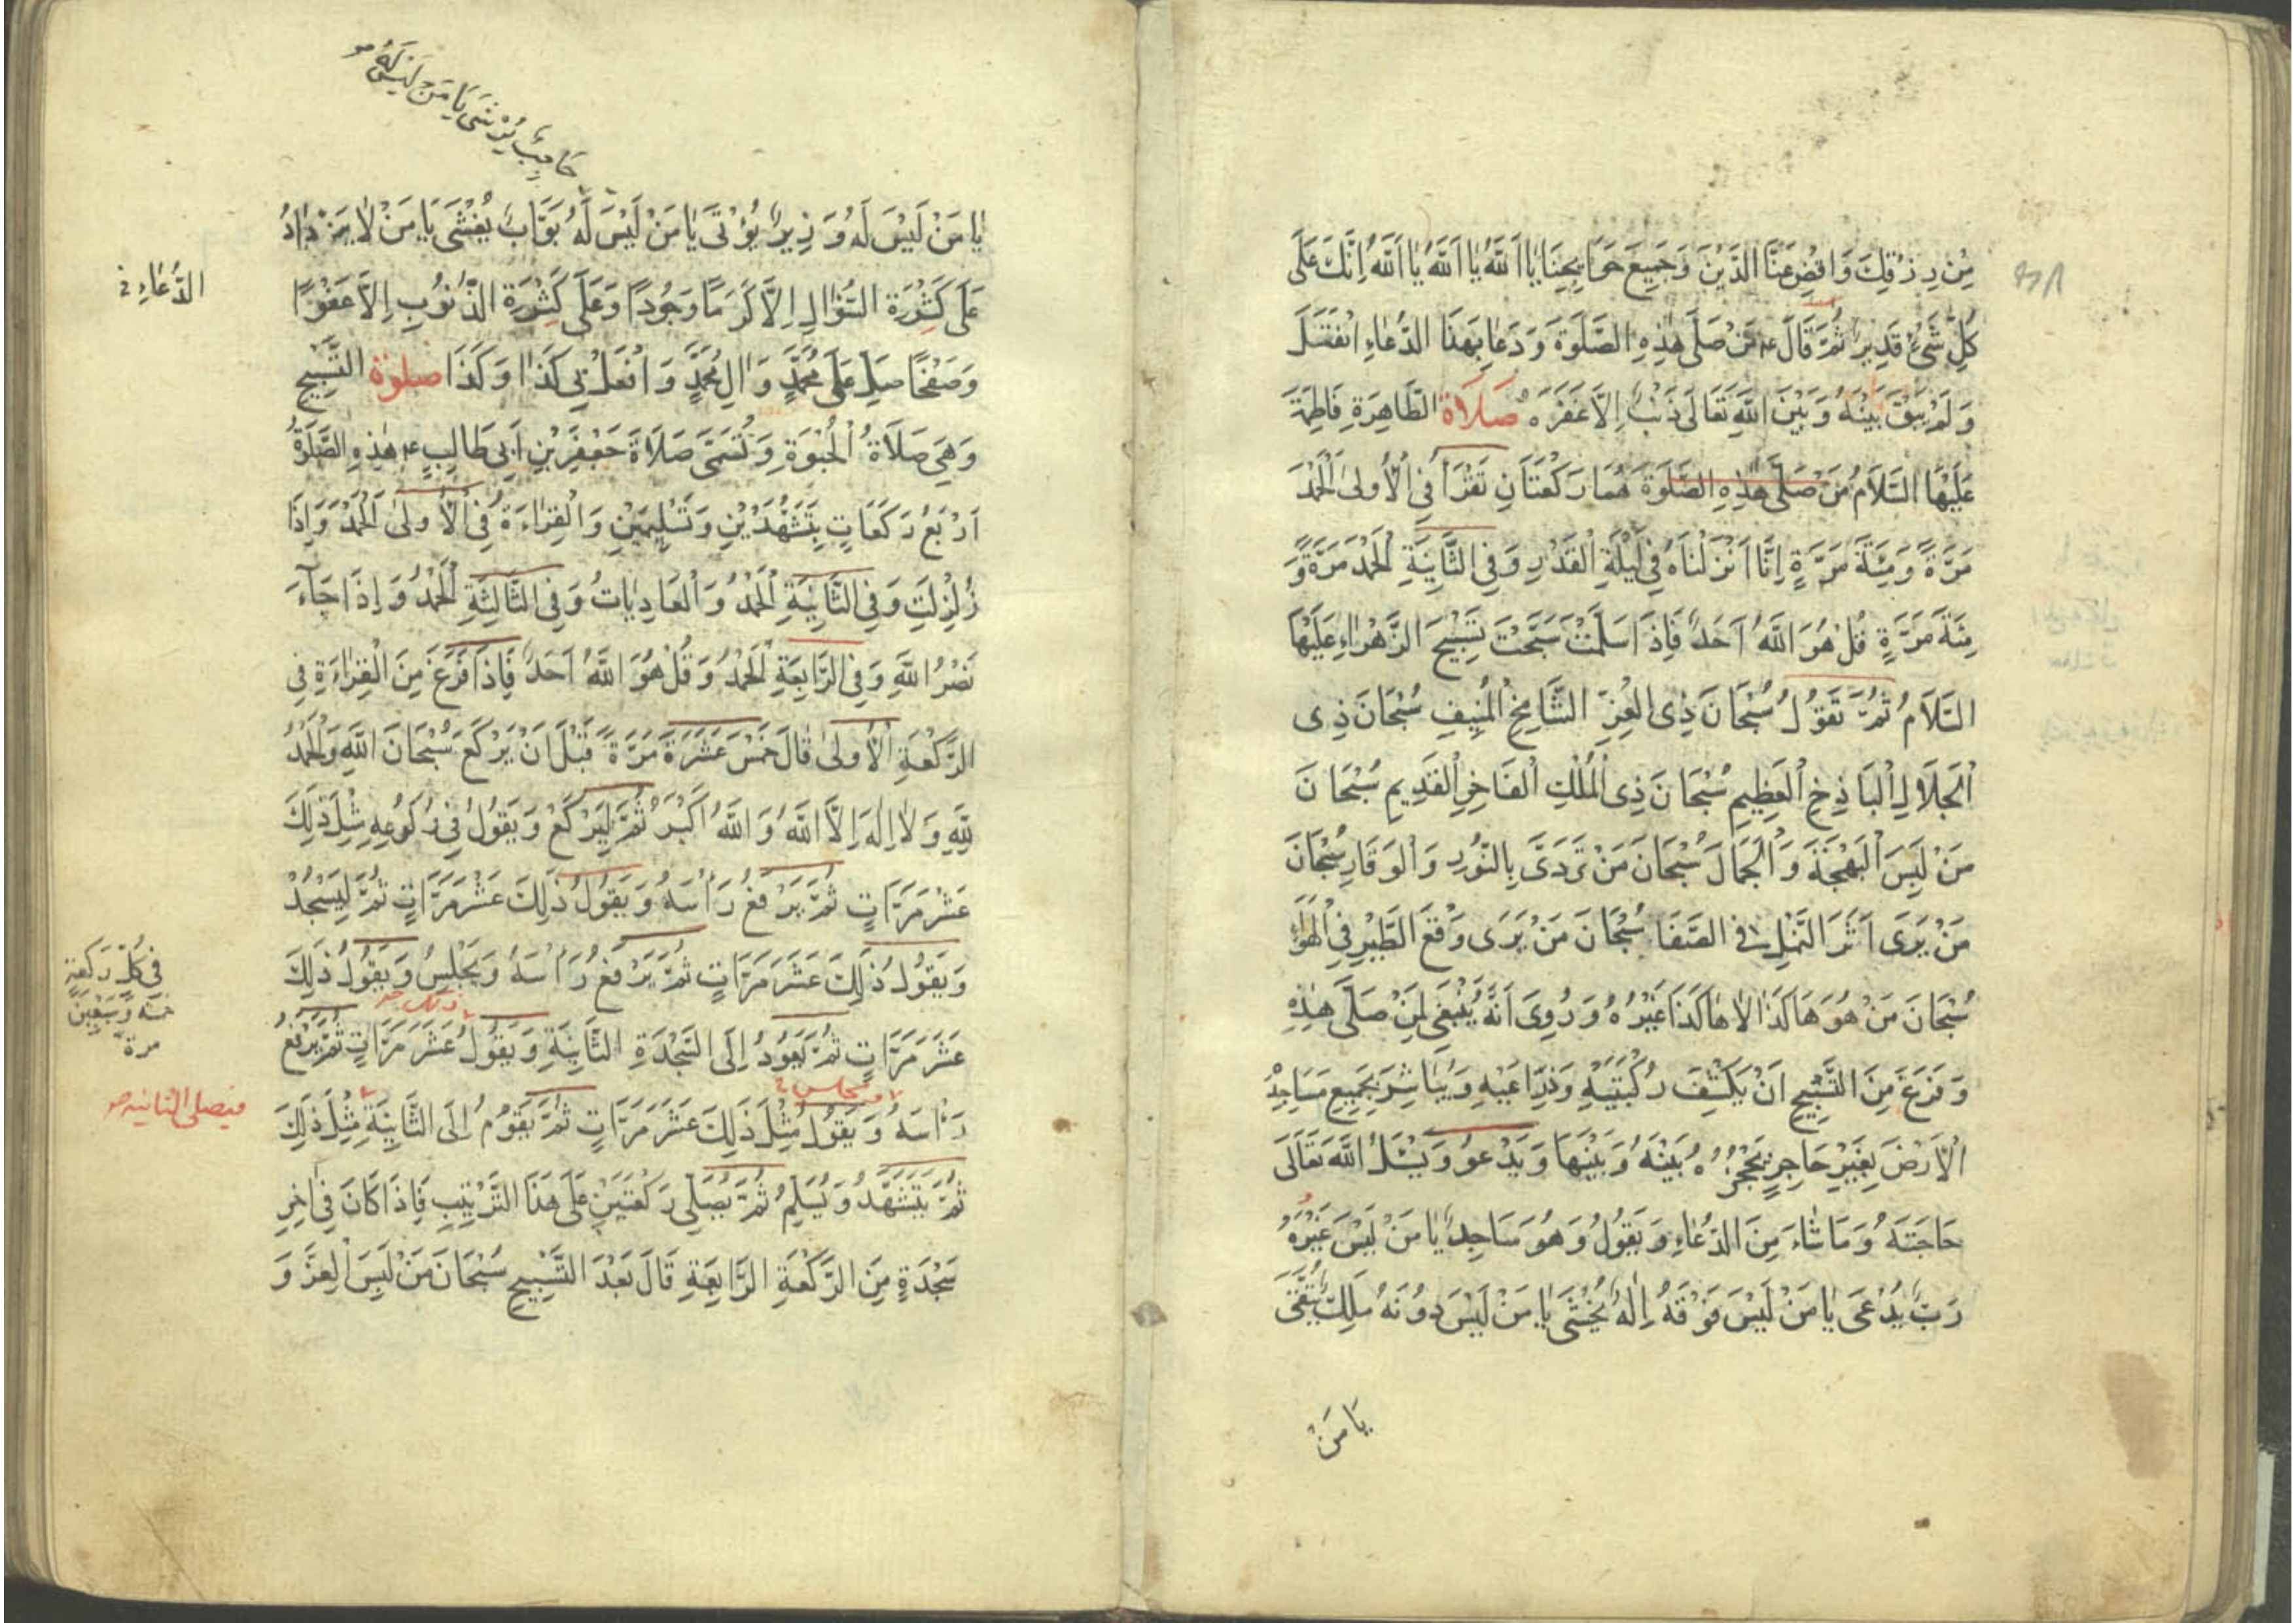 مِنْ رِزْقِكَ وَاقْضِ عَنَّا الدَّيْنَ وَجَمِيعَ حَوَايِجِنَا يَا اَللَّهُ يَا اَللَّهُ يَا اَللَّهُ اِنَّكَ عَلَى
كُلِّ شَىْءٍ قَدِيرٌ ثُمَّ قَالَ ع مَنْ صَلَّى هٰذِهِ الصَّلٰوةَ وَدَعَا بِهَذَا الدُّعَاءِ انْفَتَلَ
وَلَمْ يَبْقَ بَيْنَهُ وَبَيْنَ اللَّهِ تَعَالَى ذَنْبٌ اِلاَّ غَفَرَهُ صَلَاةُ الطَّاهِرَةِ فَاطِمَةَ
عَلَيْهَا السَّلاَمُ مَنْ صَلَّى هٰذِهِ الصَّلَوةَ هُمَا رَكْعَتَانِ تَقْرَأُ فِى الْاُولىٰ الْحَمْدَ
مَرَّةً وَمِئَةَ مَرَّةٍ اِنَّا اَنْزَلْنَاهُ فِى لَيْلَةِ الْقَدْرِ وَفِى الثَّانِيَةِ الْحَمْدَ مَرَّةً وَ
مِئَةَ مَرَّةٍ قُلْ هُوَ اللَّهُ اَحَدٌ فَاِذَا سَلَّمْتَ سَبَّحْتَ تَسْبِيحَ الزَّهْرَاءِ عَلَيْهَا
السَّلاَمُ ثُمَّ تَقُولُ سُبْحَانَ ذِى الْعِزِّ الشَّامِخِ الْمُنِيفِ سُبْحَانَ ذِى
الْجَلَالِ الْبَاذِخِ الْعَظِيمِ سُبْحَانَ ذِى الْمُلْكِ الْفَاخِرِ الْقَدِيمِ سُبْحَانَ
مَنْ لَبِسَ الْبَهْجَةَ وَالْجَمَالَ سُبْحَانَ مَنْ تَرَدَّى بِالنُّورِ وَالْوَقَارِ سُبْحَانَ
مَنْ يَرَى اَثَرَ النَّمْلِ فِى الصَّفَا سُبْحَانَ مَنْ يَرَى وَقْعَ الطَّيْرِ فِى الْهَوَاءِ
سُبْحَانَ مَنْ هُوَ هَاكَذَا لاَ هَاكَذَا غَيْرُهُ وَرُوِىَ اَنَّهُ يَنْبَغِى لِمَنْ صَلَّى هٰذِهِ
وَفَرَغَ مِنَ التَّسْبِيحِ اَنْ يَكْشِفَ رُكْبَتَيْهِ وَذِرَاعَيْهِ وَيُبَاشِرَ بِجَمِيعِ مَسَاجِدِهِ
الْاَرْضَ بِغَيْرِ حَاجِزٍ يَحْجُزُهُ بَيْنَهُ وَبَيْنَهَا وَيَدْعُو وَيَسْئَلُ اللَّهَ تَعَالَى
حَاجَتَهُ وَمَا شَاءَ مِنَ الدُّعَاءِ وَيَقُولُ وَهُوَ سَاجِدٌ يَا مَنْ لَيْسَ غَيْرُهُ
رَبٌّ يُدْعَى يَا مَنْ لَيْسَ فَوْقَهُ اِلٰهٌ يُخْشَى يَا مَنْ لَيْسَ دُونَهُ مَلِكٌ يُتَّقَى
يَا مَنْ
حَاجِبٌ يُرْشَى يَا مَنْ لَيْسَ لَهُ
يَا مَنْ لَيْسَ لَهُ وَزِيرٌ يُؤْتَى يَا مَنْ لَيْسَ لَهُ بَوَّابٌ يُغْشَى يَا مَنْ لاَ يَزْدَادُ
عَلَى كَثْرَةِ السُّؤَالِ اِلاَّ كَرَمًا وَجُودًا وَعَلَى كَثْرَةِ الذُّنُوبِ اِلاَّ عَفْوًا
الدُّعَاءِ
وَصَفْحًا صَلِّ عَلَى مُحَمَّدٍ وَاٰلِ مُحَمَّدٍ وَافْعَلْ بِى كَذَا وَكَذَا صَلٰوةُ التَّسْبِيحِ
وَهِىَ صَلَاةُ الْحُبْوَةِ وَتُسَمَّى صَلَاةَ جَعْفَرِ بْنِ اَبِى طَالِبٍ ع هٰذِهِ الصَّلٰوةُ
اَرْبَعُ رَكَعَاتٍ بِتَشَهُّدَيْنِ وَتَسْلِيمَيْنِ وَالْقِرَاءَةُ فِى الْاُولىٰ الْحَمْدُ وَاِذَا
زُلْزِلَتِ وَفِى الثَّانِيَةِ الْحَمْدُ وَالْعَادِيَاتُ وَفِى الثَّالِثَةِ الْحَمْدُ وَاِذَا جَاءَ
نَصْرُ اللَّهِ وَفِى الرَّابِعَةِ الْحَمْدُ وَقُلْ هُوَ اللَّهُ اَحَدٌ فَاِذَا فَرَغَ مِنَ الْقِرَاءَةِ فِى
الرَّكْعَةِ الْاُولىٰ قَالَ خَمْسَ عَشَرَةَ مَرَّةً قَبْلَ اَنْ يَرْكَعَ سُبْحَانَ اللَّهِ وَالْحَمْدُ
لِلَّهِ وَلاَ اِلٰهَ اِلاَّ اللَّهُ وَاللَّهُ اَكْبَرُ ثُمَّ لِيَرْكَعْ وَيَقُولُ فِى رُكُوعِهِ مِثْلَ ذَلِكَ
عَشْرَ مَرَّاتٍ ثُمَّ يَرْفَعُ رَأْسَهُ وَيَقُولُ ذٰلِكَ عَشْرَ مَرَّاتٍ ثُمَّ لِيَسْجُدْ
وَيَقُولُ ذٰلِكَ عَشَرَ مَرَّاتٍ ثُمَّ يَرْفَعُ رَأْسَهُ وَيَجْلِسُ وَيَقُولُ ذٰلِكَ
فِى كُلِّ رَكْعَةٍ
خَمْسَةً وَسَبْعِينَ
مرة
ذلك
عَشَرَ مَرَّاتٍ ثُمَّ يَعُودُ اِلَى السَّجْدَةِ الثَّانِيَةِ وَيَقُولُ عَشَرَ مَرَّاتٍ ثُمَّ يَرْفَعُ
فيصلى الثانيه
ويجلس
رَأْسَهُ وَيَقُولُ مِثْلَ ذٰلِكَ عَشَرَ مَرَّاتٍ ثُمَّ يَقُومُ اِلَى الثَّانِيَةِ مِثْلَ ذَلِكَ
ثُمَّ يَتَشَهَّدُ وَيُسَلِّمُ ثُمَّ يُصَلِّى رَكْعَتَيْنِ عَلَى هَذَا التَّرْتِيبِ فَاِذَا كَانَ فِى اٰخِرِ
سَجْدَةٍ مِنَ الرَّكْعَةِ الرَّابِعَةِ قَالَ بَعْدَ التَّسْبِيحِ سُبْحَانَ مَنْ لَبِسَ الْعِزَّ وَ